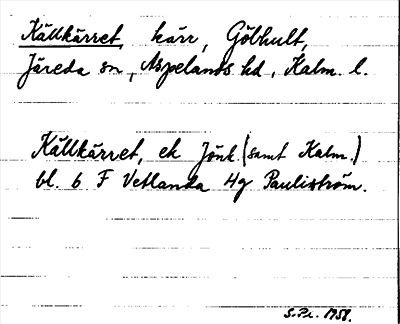 Källkärret, kärr, Göbhult,
Järeda sn, Aspelands hd, Kalm. l.
Källkärret, ek Jönk (samt Kalm.)
bl. 6 F Vetlanda 4g Pauliström.
S.Pr. 1958.